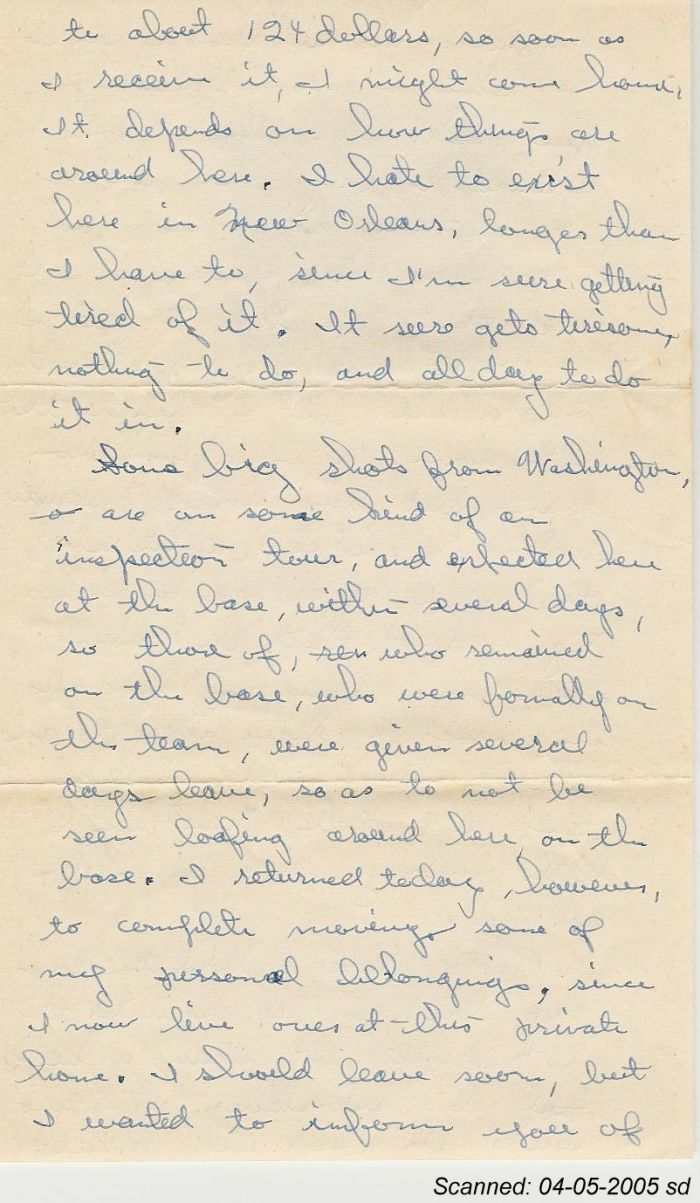 to about 124 dollars, so soon as
I receive it, I might come home,
It depends on how things are
around here. I hate to exist
here in New Orleans, longer than
I have to, since I'm sure getting
tired of it. It sure gets tiresome,
nothing to do, and all day to do
it in.
Some big shots from Washington,
are on some kind of an
inspection tour, and expected here
at the base, within several days,
so those of, who remained
on the base, who were formally on
the team, were given several
days leave, so as to not be
seen loafing around here on the
base. I returned today, however,
to complete moving some of
my personal belongings, since
I now live over at this private
home. I should leave soon, but
I wanted to inform you of
Scanned: 04-05-2005 sd